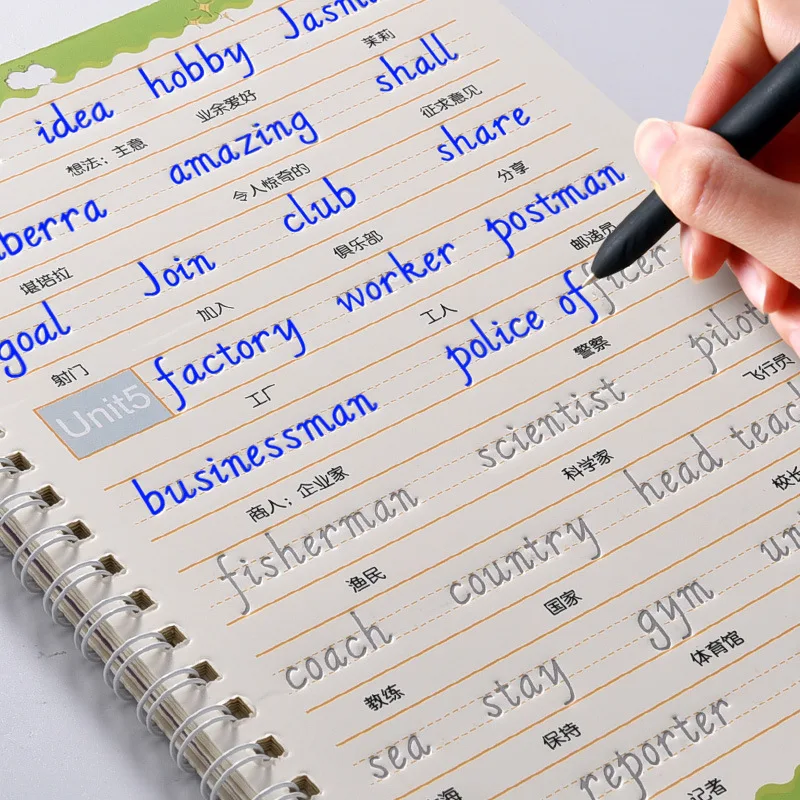 idea hobby Jasmi
想法；主意 业余爱好 茉莉
berra amazing shall
堪培拉 令人惊奇的 征求意见
goal Join club share
射门 加入 俱乐部 分享
Unit5 factory worker postman
工厂 工人 邮递员
businessman police officer
商人；企业家 警察
fisherman scientist pilot
渔民 科学家 飞行员
coach country head teach
教练 国家 校长
sea stay gym un
海 保持 体育馆
reporter
记者